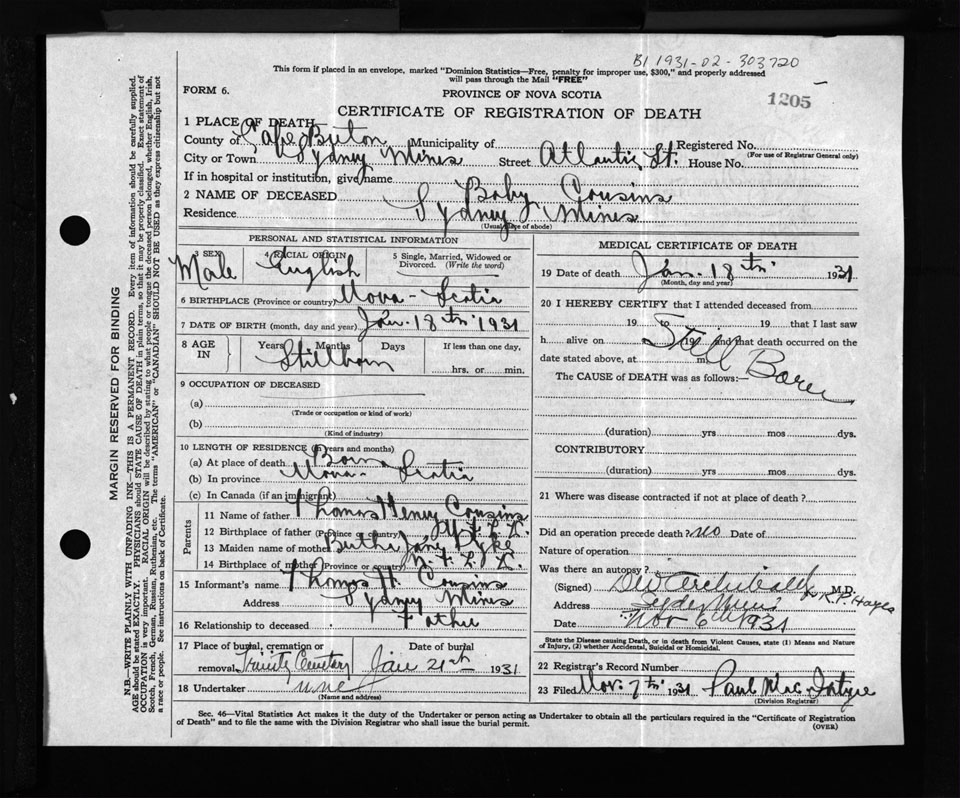 B1 1931-02-303720
This form if placed in an envelope, marked "Dominion Statistics—Free, penalty for improper use, $300," and properly addressed
will pass through the Mail "FREE"
FORM 6.
PROVINCE OF NOVA SCOTIA
1205
CERTIFICATE OF REGISTRATION OF DEATH
1 PLACE OF DEATH
County of Cape Breton Municipality of Registered No.
(For use of Registrar General only)
City or Town Sydney Mines Street Atlantic St. House No.
If in hospital or institution, give name
2 NAME OF DECEASED Baby Cousins
Residence Sydney Mines
(Usual place of abode)
PERSONAL AND STATISTICAL INFORMATION
3 SEX Male 4 RACIAL ORIGIN English 5 Single, Married, Widowed or Divorced. (Write the word)
6 BIRTHPLACE (Province or country) Nova-Scotia
7 DATE OF BIRTH (month, day and year) Jan. 18th 1931
8 AGE IN Years Months Days If less than one day.
Stillborn hrs. or min.
9 OCCUPATION OF DECEASED
(a)
(Trade or occupation or kind of work)
(b)
(Kind of industry)
10 LENGTH OF RESIDENCE (in years and months)
(a) At place of death Born
(b) In province Nova-Scotia
(c) In Canada (if an immigrant)
Parents
11 Name of father Thomas Henry Cousins
12 Birthplace of father (Province or country) N.F.L.D.
13 Maiden name of mother Jane
14 Birthplace of mother (Province or country) N.F.L.D.
15 Informant's name Thomas H. Cousins
Address Sydney Mines
16 Relationship to deceased Father
17 Place of burial, cremation or removal Trinity Cemetery Date of burial Jan 21st 1931
18 Undertaker none
(Name and address)
MEDICAL CERTIFICATE OF DEATH
19 Date of death Jan. 18th 1931
(Month, day and year)
20 I HEREBY CERTIFY that I attended deceased from
19 to 19 that I last saw
h alive on 19 and that death occurred on the
date stated above, at m.
Still Born
The CAUSE OF DEATH was as follows:—
(duration) yrs mos dys.
CONTRIBUTORY
(duration) yrs mos dys.
21 Where was disease contracted if not at place of death?
Did an operation precede death? no Date of
Nature of operation
Was there an autopsy?
(Signed) Archibald M.B.
for R.F. Hayes
Address
Date Nov 6th 1931
State the Disease causing Death, or in death from Violent Causes, state (1) Means and Nature
of Injury, (2) whether Accidental, Suicidal or Homicidal.
22 Registrar's Record Number
23 Filed Nov. 7th 1931 Paul MacIntyre
(Division Registrar)
Sec. 46—Vital Statistics Act makes it the duty of the Undertaker or person acting as Undertaker to obtain all the particulars required in the "Certificate of Registration
of Death" and to file the same with the Division Registrar who shall issue the burial permit.
(OVER)
MARGIN RESERVED FOR BINDING
N.B.—WRITE PLAINLY WITH UNFADING INK—THIS IS A PERMANENT RECORD. Every item of information should be carefully supplied.
AGE should be stated EXACTLY. PHYSICIANS should STATE CAUSE OF DEATH in plain terms, so that it may be properly classified. Exact statement of
OCCUPATION is very important. RACIAL ORIGIN will be described by stating to what people or tongue the deceased person belonged, whether English, Irish,
Scotch, French, German, Russian, Ruthenian, etc. The terms "AMERICAN" or "CANADIAN" SHOULD NOT BE USED as they express citizenship but not
a race or people. See instructions on back of Certificate.